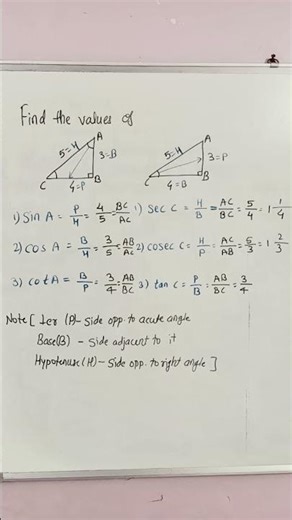 Find the values of
A A
5=H 3=B 5=H 3=P
C 4=P B C 4=B B
1) Sin A = P/H = 4/5 = BC/AC 1) Sec C = H/B = AC/BC = 5/4 = 1 1/4
2) Cos A = B/H = 3/5 = AB/AC 2) Cosec C = H/P = AC/AB = 5/3 = 1 2/3
3) Cot A = B/P = 3/4 = AB/BC 3) tan C = P/B = AB/BC = 3/4
Note [ (P) - Side opp to acute angle
Base(B) - Side adjacent to it
Hypotenuse (H) - Side opp. to right angle ]